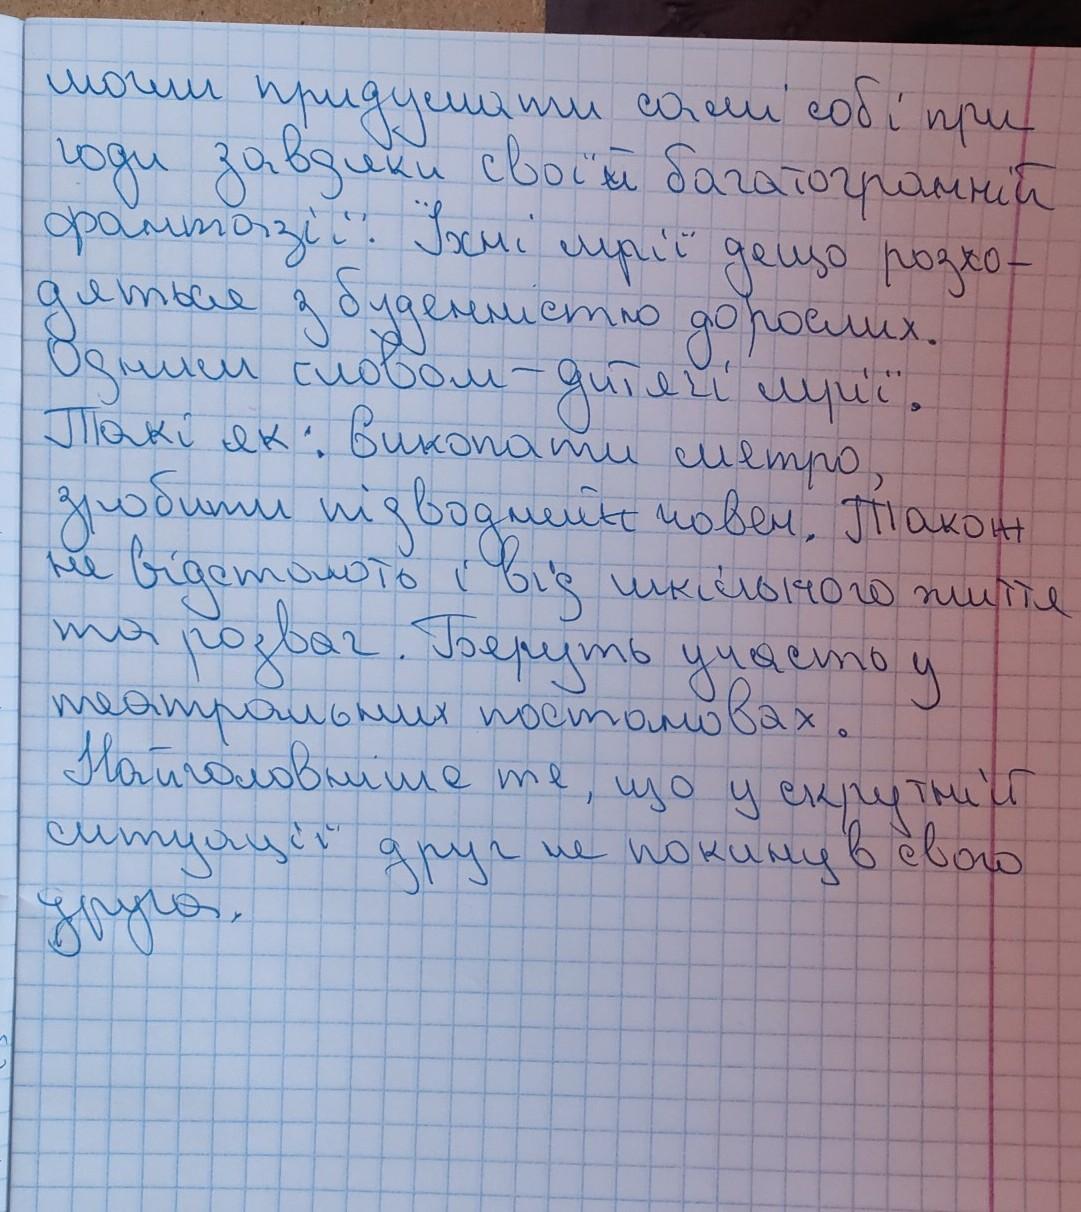 могли придумати самі собі при
годи завдяки своїй багатогранній
фантазії. Їхні мрії дещо розхо-
дяться з буденністю дорослих.
Одним словом – дитячі мрії.
Такі як: викопати метро,
зробити підводний човен. Також
не відстають і від шкільного життя
та розваг. Беруть участь у
театральних постановах.
Найголовніше те, що у скрутній
ситуації друг не покинув свого
друга.